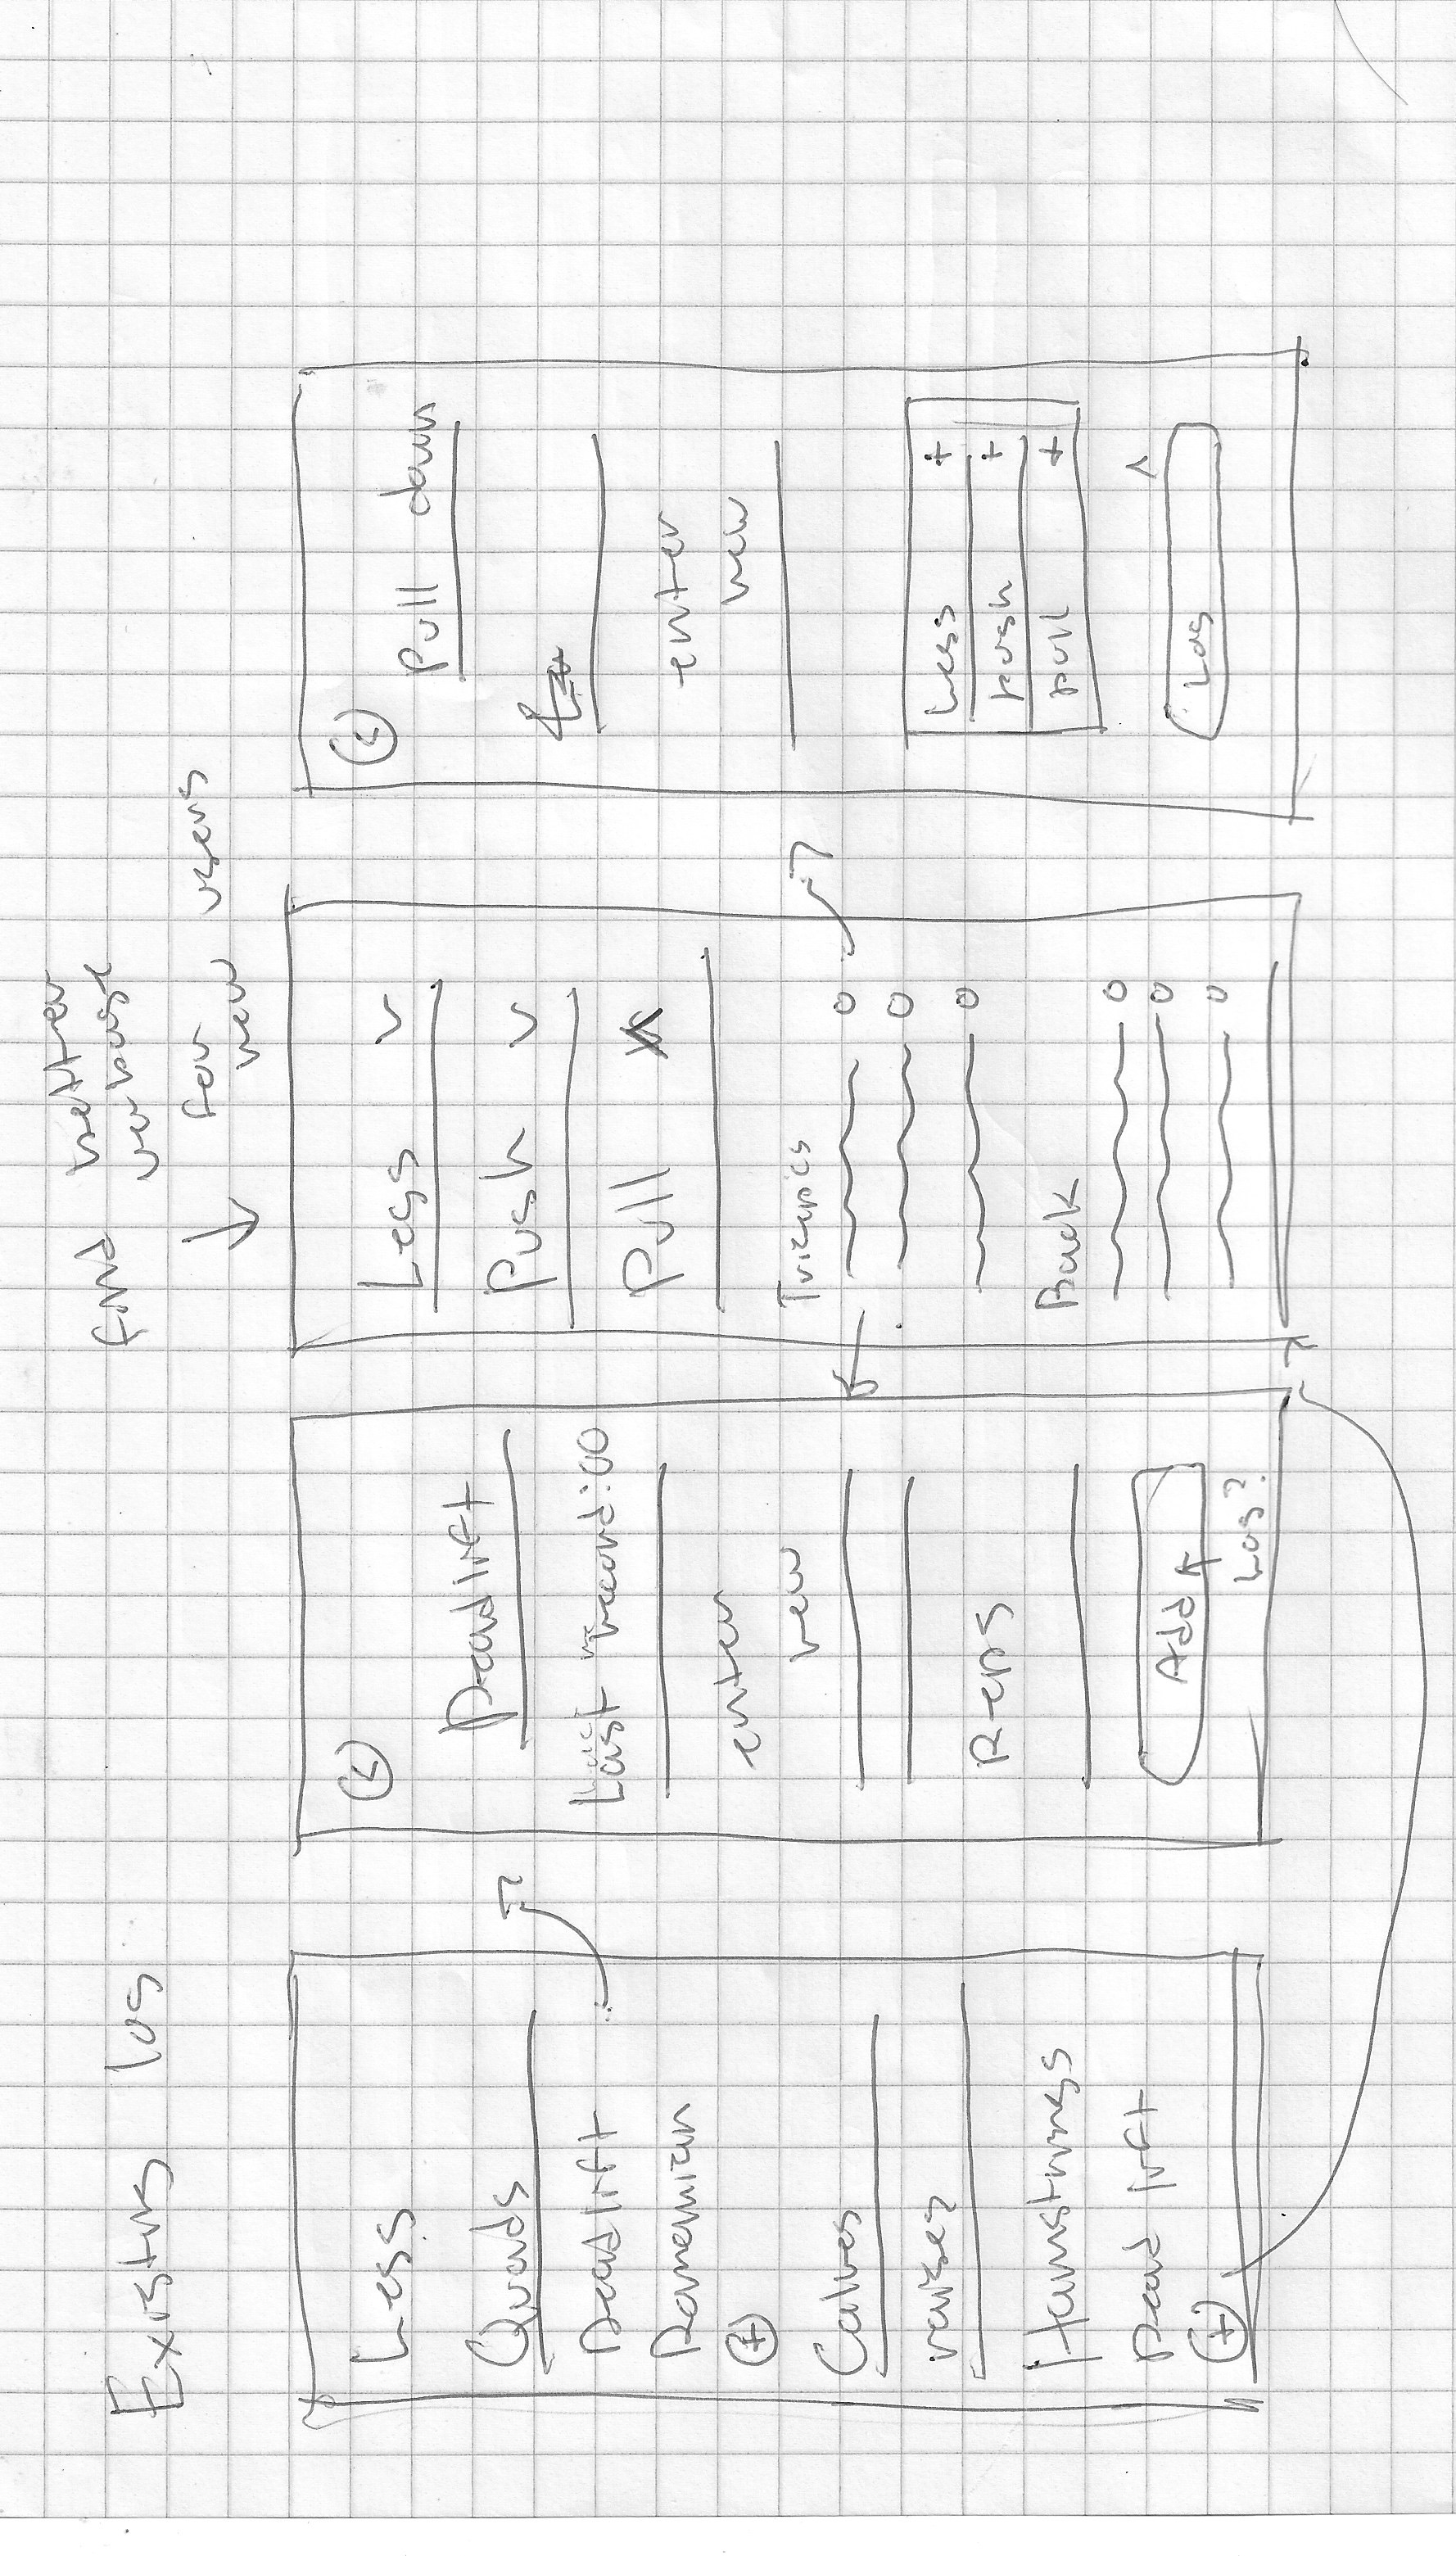 Existing log
Legs
Quads
Deadlift
Romanian
+
Calves
raises
Hamstrings
Dead lift
+
<
Deadlift
Last record:00
enter
new
Reps
Add
Log?
find better
verbage
for
new users
Legs
Push
Pull
Triceps
Back
<
Pull down
enter
new
Legs +
push +
pull +
Log